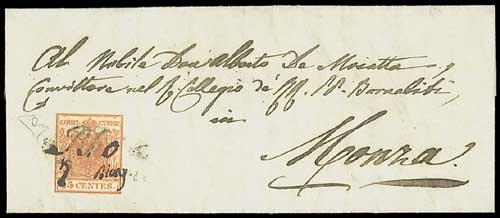 Al Nobile Don Alberto De Moietta
Convittore nel R. Collegio de' RR. PP. Barnabiti
in
Monza.
KKPOST-STEMPEL
Rho
7
15 CENTES.